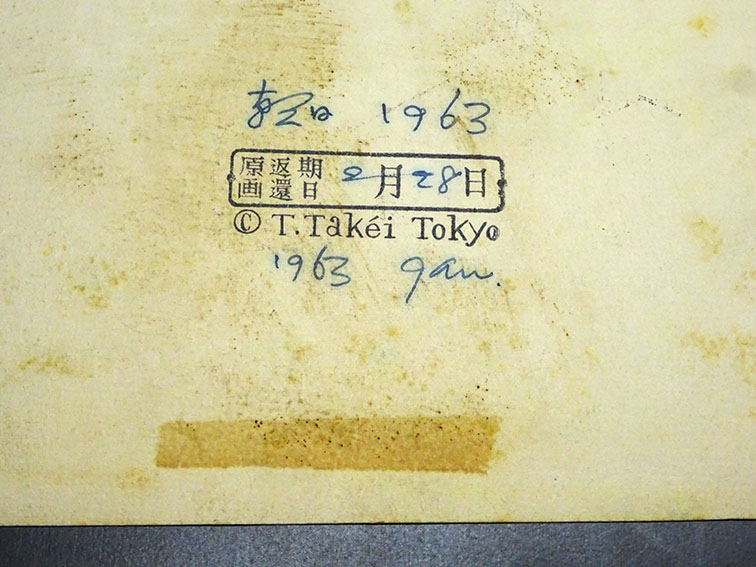 1963
原画返還期日 2月28日
© T.Takéi Tokyo
1963 Jan.